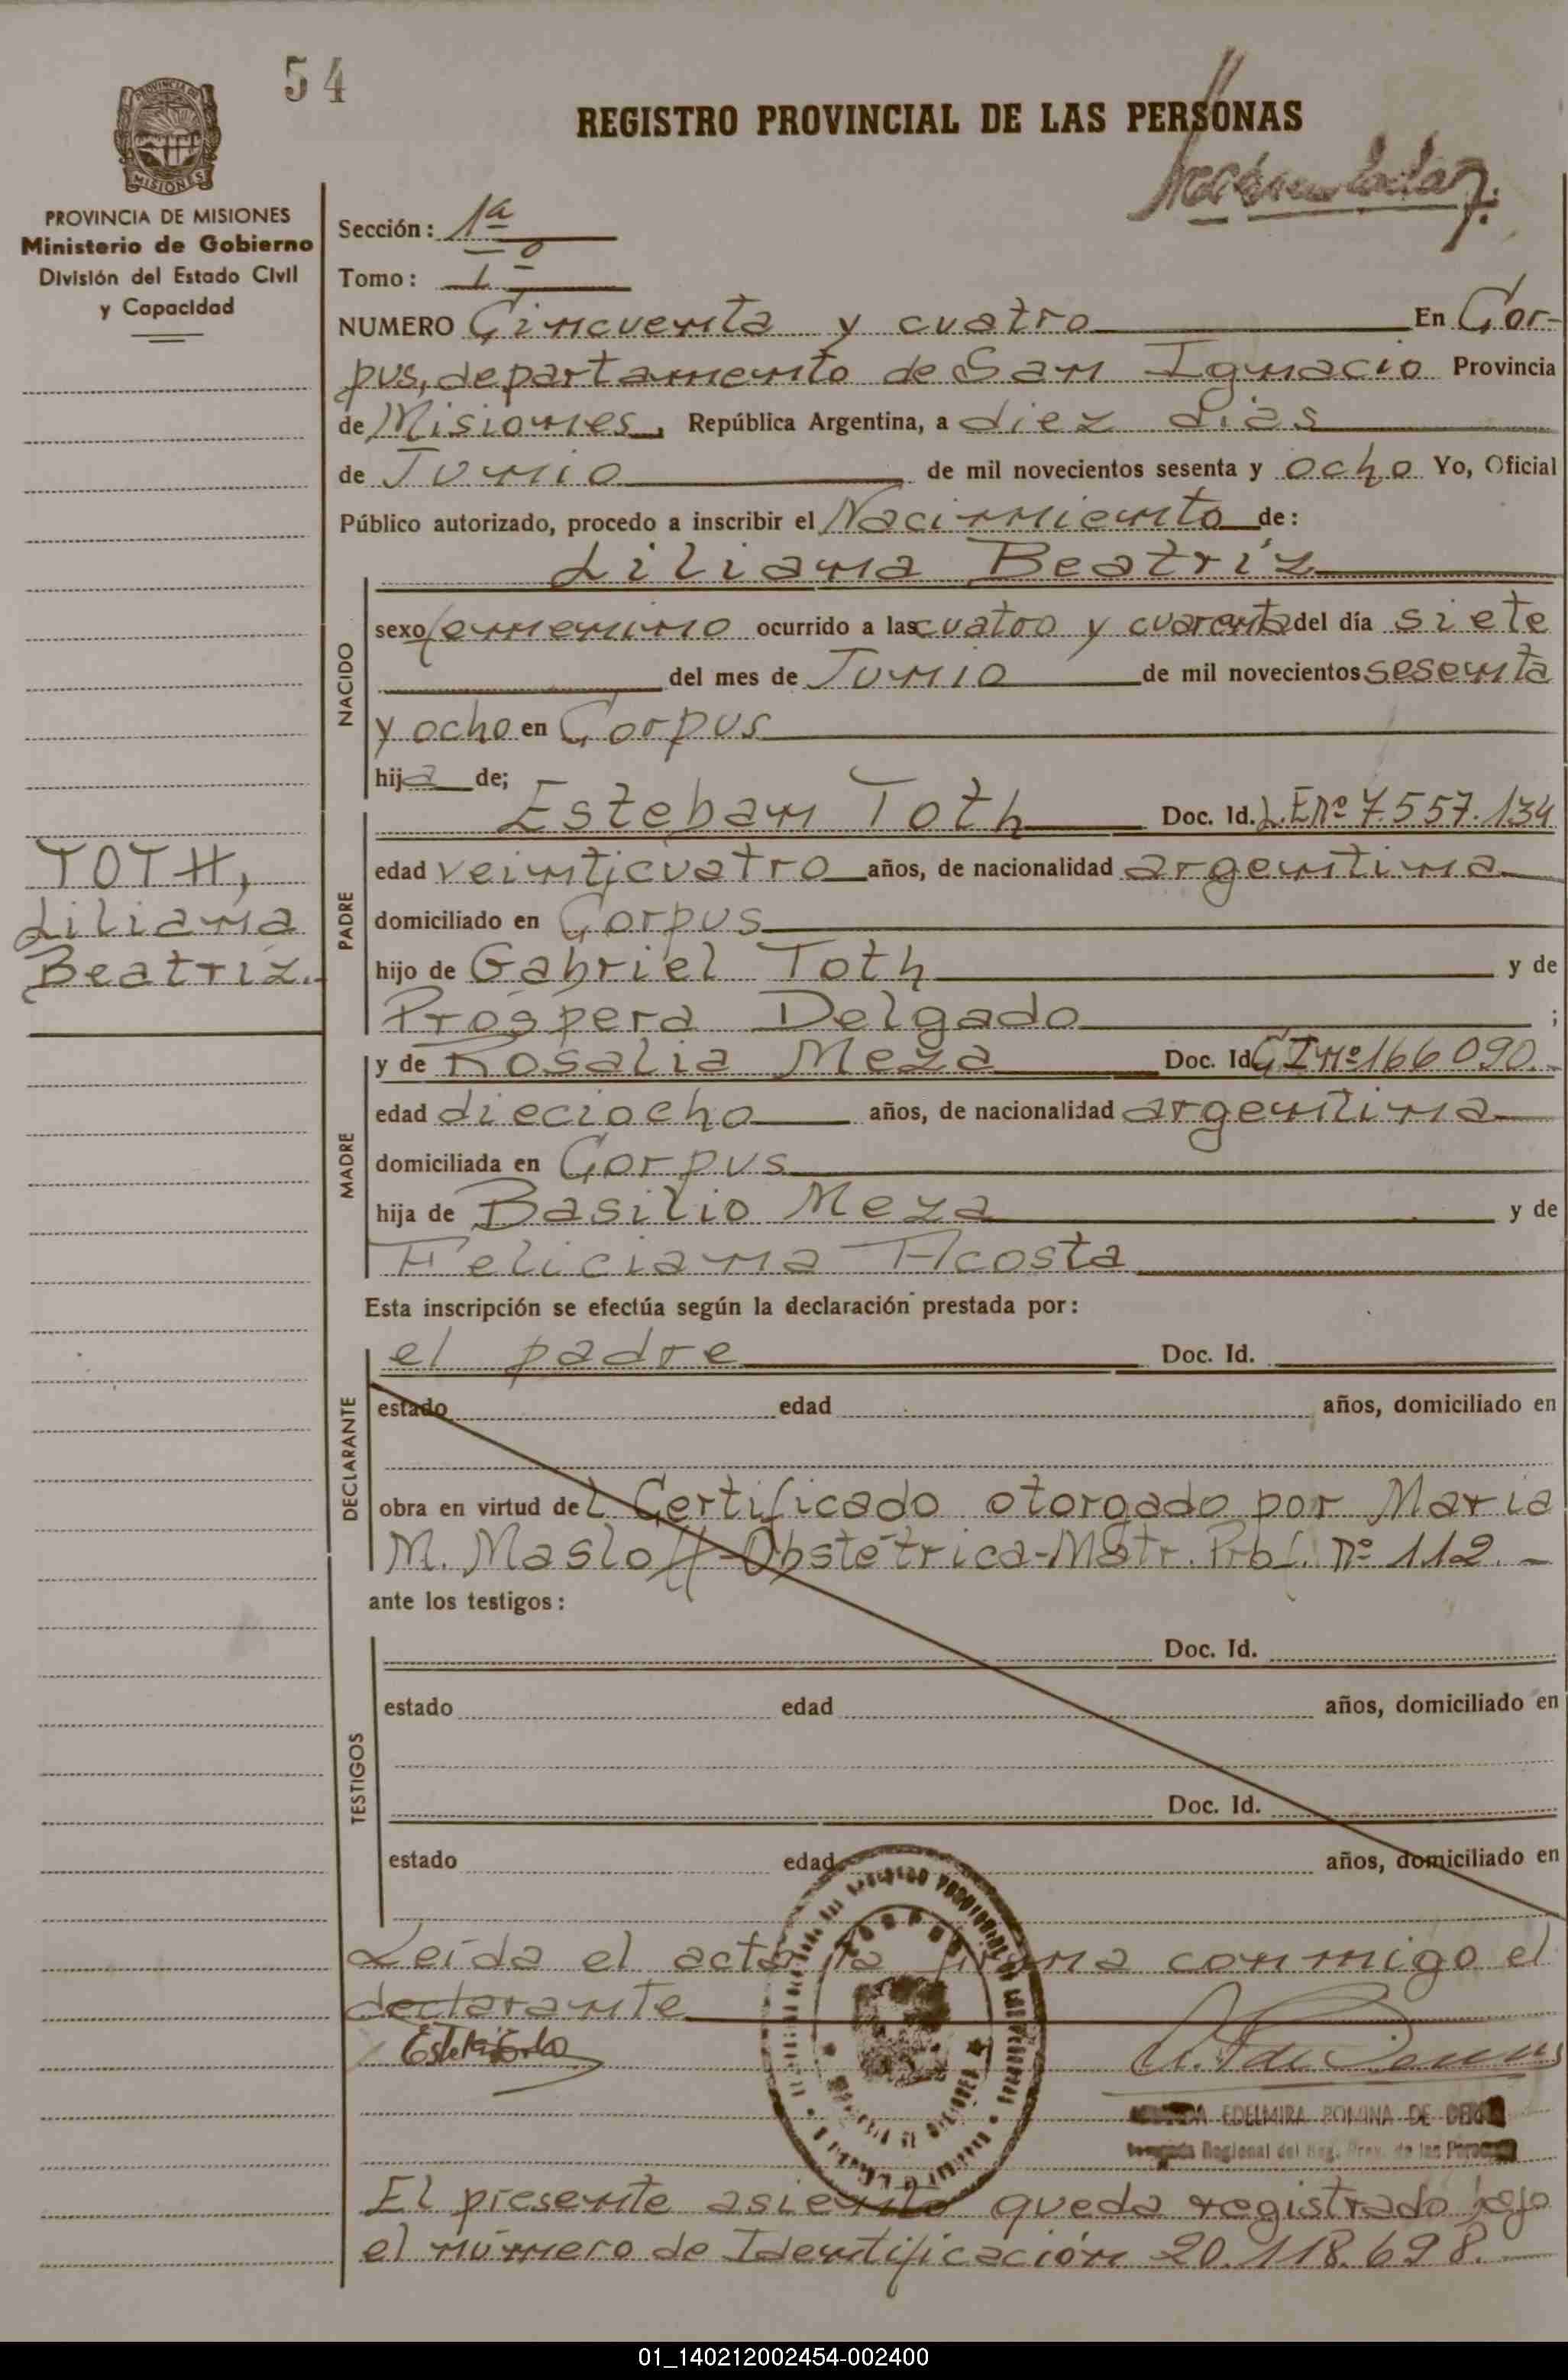 54
REGISTRO PROVINCIAL DE LAS PERSONAS
PROVINCIA DE
MISIONES
PROVINCIA DE MISIONES
Ministerio de Gobierno
División del Estado Civil
y Capacidad
Sección: 1ª
Tomo: 1º
NUMERO Cincuenta y cuatro En Cor-
pus, departamento de San Ignacio Provincia
de Misiones, República Argentina, a diez días
de Junio de mil novecientos sesenta y ocho Yo, Oficial
Público autorizado, procedo a inscribir el Nacimiento de:
Liliana Beatríz
NACIDO
sexo femenino ocurrido a las cuatro y cuarenta del día siete
del mes de Junio de mil novecientos sesenta
y ocho en Corpus
hija de;
PADRE
Esteban Toth Doc. Id. L.E nº 7.557.134
edad veinticuatro años, de nacionalidad argentina
domiciliado en Corpus
hijo de Gabriel Toth y de
Próspera Delgado ;
TOTH,
Liliana
Beatríz.
MADRE
y de Rosalia Meza Doc. Id. C.I nº 166.090.-
edad dieciocho años, de nacionalidad argentina
domiciliada en Corpus
hija de Basilio Meza y de
Feliciana Acosta
Esta inscripción se efectúa según la declaración prestada por:
DECLARANTE
el padre Doc. Id.
estado edad años, domiciliado en
obra en virtud del Certificado otorgado por Maria
M. Masloff-Obstétrica-Matr. Prof. nº 112.-
ante los testigos:
TESTIGOS
Doc. Id.
estado edad años, domiciliado en
Doc. Id.
estado edad años, domiciliado en
Leída el acta la firma conmigo el
declarante
EDELMIRA ROMINA DE
Regional del Reg. Prov. de las
El presente asiento queda registrado bajo
el número de Identificación 20.118.698.
01_140212002454-002400